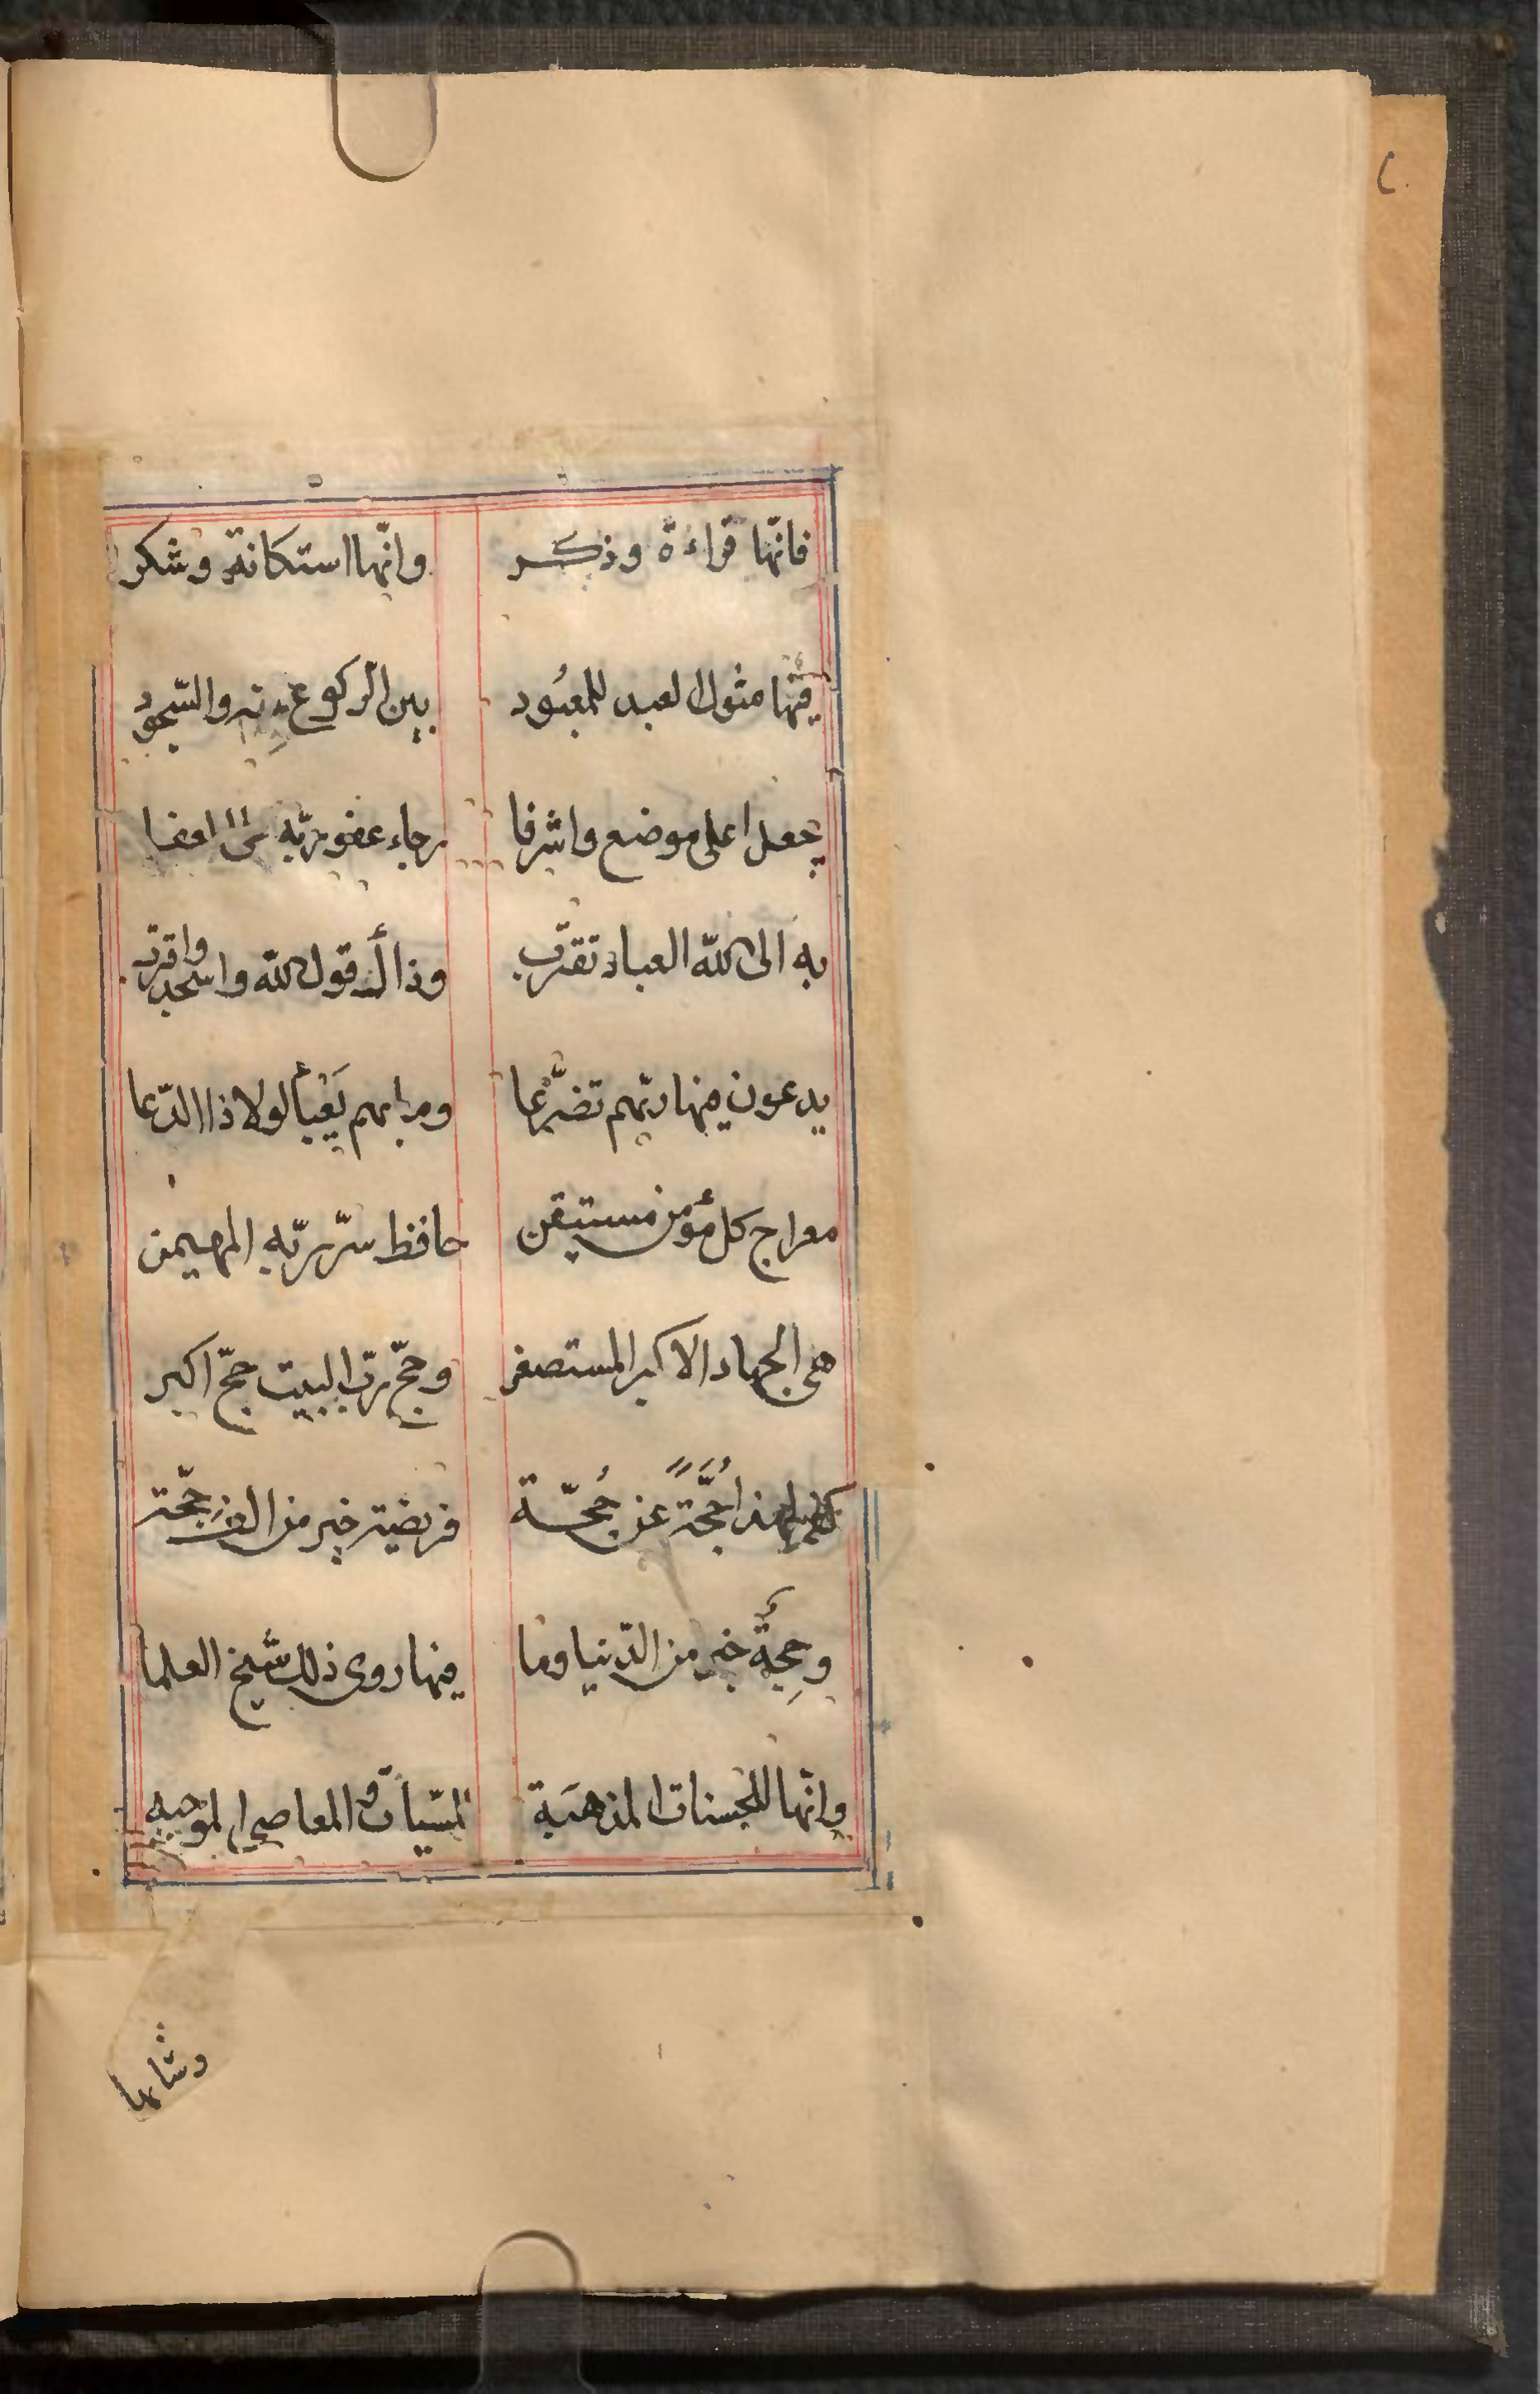 فانّها قراءة وذكر وانّها استكانة وشكر
فيها مثول العبد للمعبُود بين الركوع منه والسّجود
يجعل اعلى موضع واشرفا رجاء عفو ربّه
به الى اللّه العباد تقترب وذاك قول اللّه واسجد واقترب
يدعون فيها ربّهم تضرّعا وما بهم يَعْبأ لولا ذا الدّعا
معراج كل مؤمن مستيقن حافظ سرّ ربّه المهيمن
هى الجهاد الاكبر المستصغر وحجّ ربّ البيت حجّ اكبر
حُجَّةً عن حُجّة فريضة خير من الف حجّة
وحِجةٌ خير من الدّنيا وما فيها روى ذلك شيخ العلما
وانّها للحسنات المذهبَة للسّيأت والمعاصى الموجبه
وشابها